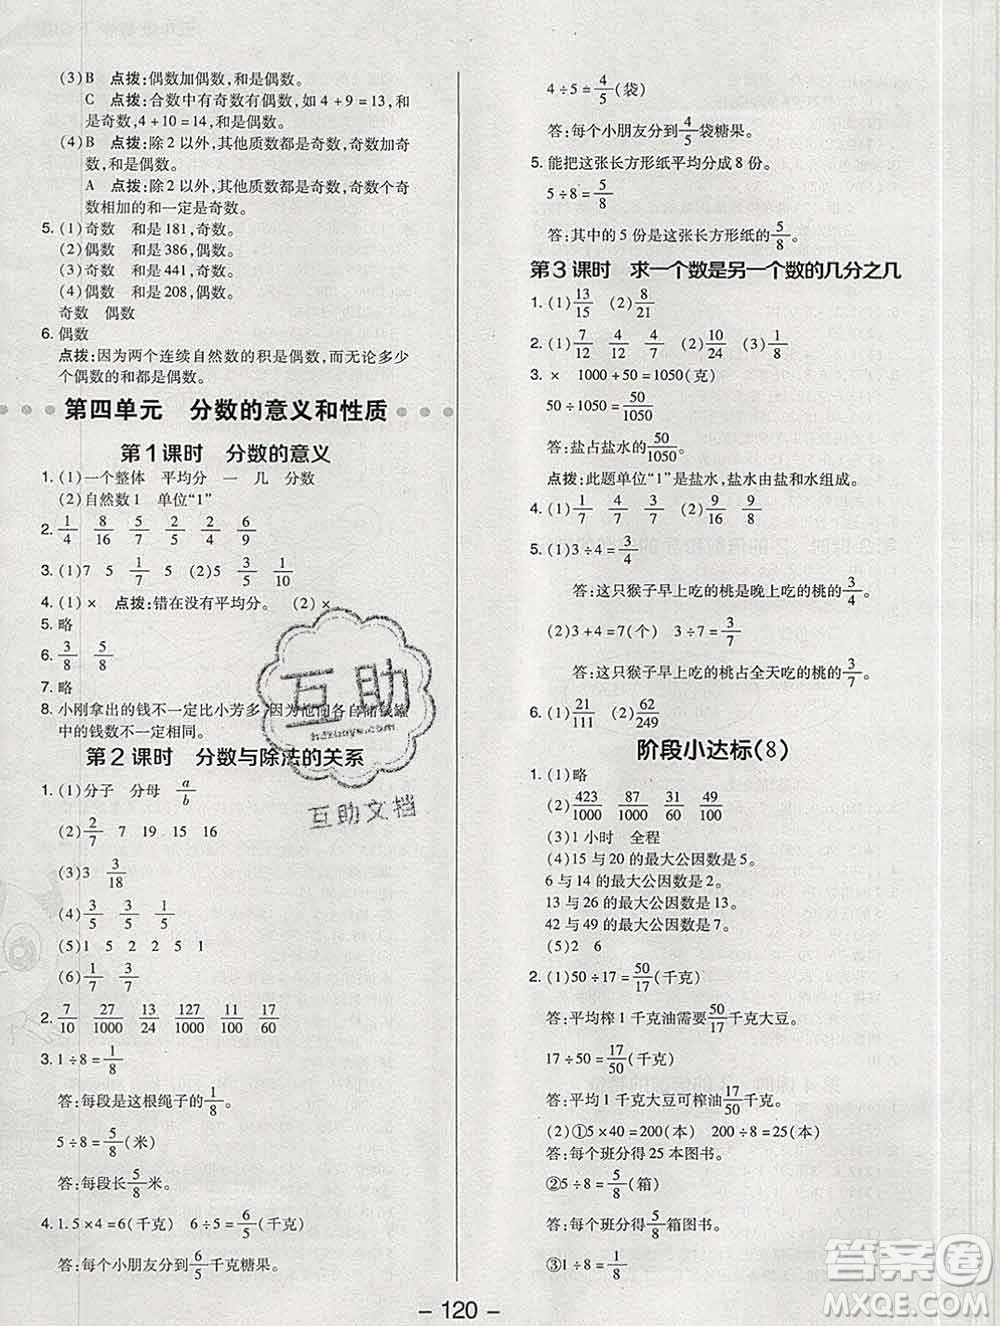 (3)B 点拨:偶数加偶数,和是偶数。
C 点拨:合数中有奇数有偶数,如 4+9=13,和
是奇数,4+10=14,和是偶数。
(4)B 点拨:除 2 以外,其他质数都是奇数,奇数加奇
数,和是偶数。
A 点拨:除 2 以外,其他质数都是奇数,奇数个奇
数相加的和一定是奇数。
5. (1)奇数 和是 181,奇数。
(2)偶数 和是 386,偶数。
(3)奇数 和是 441,奇数。
(4)偶数 和是 208,偶数。
奇数 偶数
6. 偶数
点拨:因为两个连续自然数的积是偶数,而无论多少
个偶数的和都是偶数。
第四单元 分数的意义和性质
第 1 课时 分数的意义
1. (1)一个整体 平均分 一 几 分数
(2)自然数 1 单位“1”
2. 1/4 8/16 5/7 2/5 2/4 6/9
3. (1)7 5 5/7 (2)5 3/5 1/10
4. (1)× 点拨:错在没有平均分。 (2)×
5. 略
6. 3/8 5/8
7. 略
8. 小刚拿出的钱不一定比小芳多,因为他们各自储钱罐
中的钱数不一定相同。
第 2 课时 分数与除法的关系
1. (1)分子 分母 a/b
(2)2/7 7 19 15 16
(3)3 3/18
(4)3/5 3/5 2/5 2/5
(5)1 5 2 2 5 1
(6)1/7 3/7
2. 7/10 27/1000 13/24 127/1000 11/100 9/30
3. 1÷8=1/8
答:每段是这根绳子的1/8。
5÷8=5/8(米)
答:每段长5/8米。
4. 1.5×4=6(千克) 6÷5=6/5(千克)
答:每个小朋友分到6/5千克糖果。
4÷5=4/5(袋)
答:每个小朋友分到4/5袋糖果。
5. 能把这张长方形纸平均分成 8 份。
5÷8=5/8
答:其中的 5 份是这张长方形纸的5/8。
第 3 课时 求一个数是另一个数的几分之几
1. (1)13/15 (2)8/21
2. (1)7/12 4/12 (2)10/24 (3)1/8
3. × 1000+50=1050(克)
50÷1050=50/1050
答:盐占盐水的50/1050。
点拨:此题单位“1”是盐水,盐水由盐和水组成。
4. (1)1/7 4/7 (2)9/16 9/58
5. (1)3÷4=3/4
答:这只猴子早上吃的桃是晚上吃的桃的3/4。
(2)3+4=7(个) 3÷7=3/7
答:这只猴子早上吃的桃占全天吃的桃的3/7。
6. (1)21/111 (2)62/249
阶段小达标(8)
1. (1)略
(2)423/1000 87/1000 31/50 49/100
(3)1 小时 全程
(4)15 与 20 的最大公因数是 5。
6 与 14 的最大公因数是 2。
13 与 26 的最大公因数是 13。
42 与 49 的最大公因数是 7。
(5)2 6
2. (1)50÷17=50/17(千克)
答:平均榨 1 千克油需要50/17千克大豆。
17÷50=17/50(千克)
答:平均 1 千克大豆可榨油17/50千克。
(2)①5×40=200(本) 200÷8=25(本)
答:每个班分得 25 本图书。
②5÷8=5/8(箱)
答:每个班分得5/8箱图书。
③1÷8=1/8
- 120 -
互助
hdzuoye.com
互助文档
答案圈
MXQE.COM